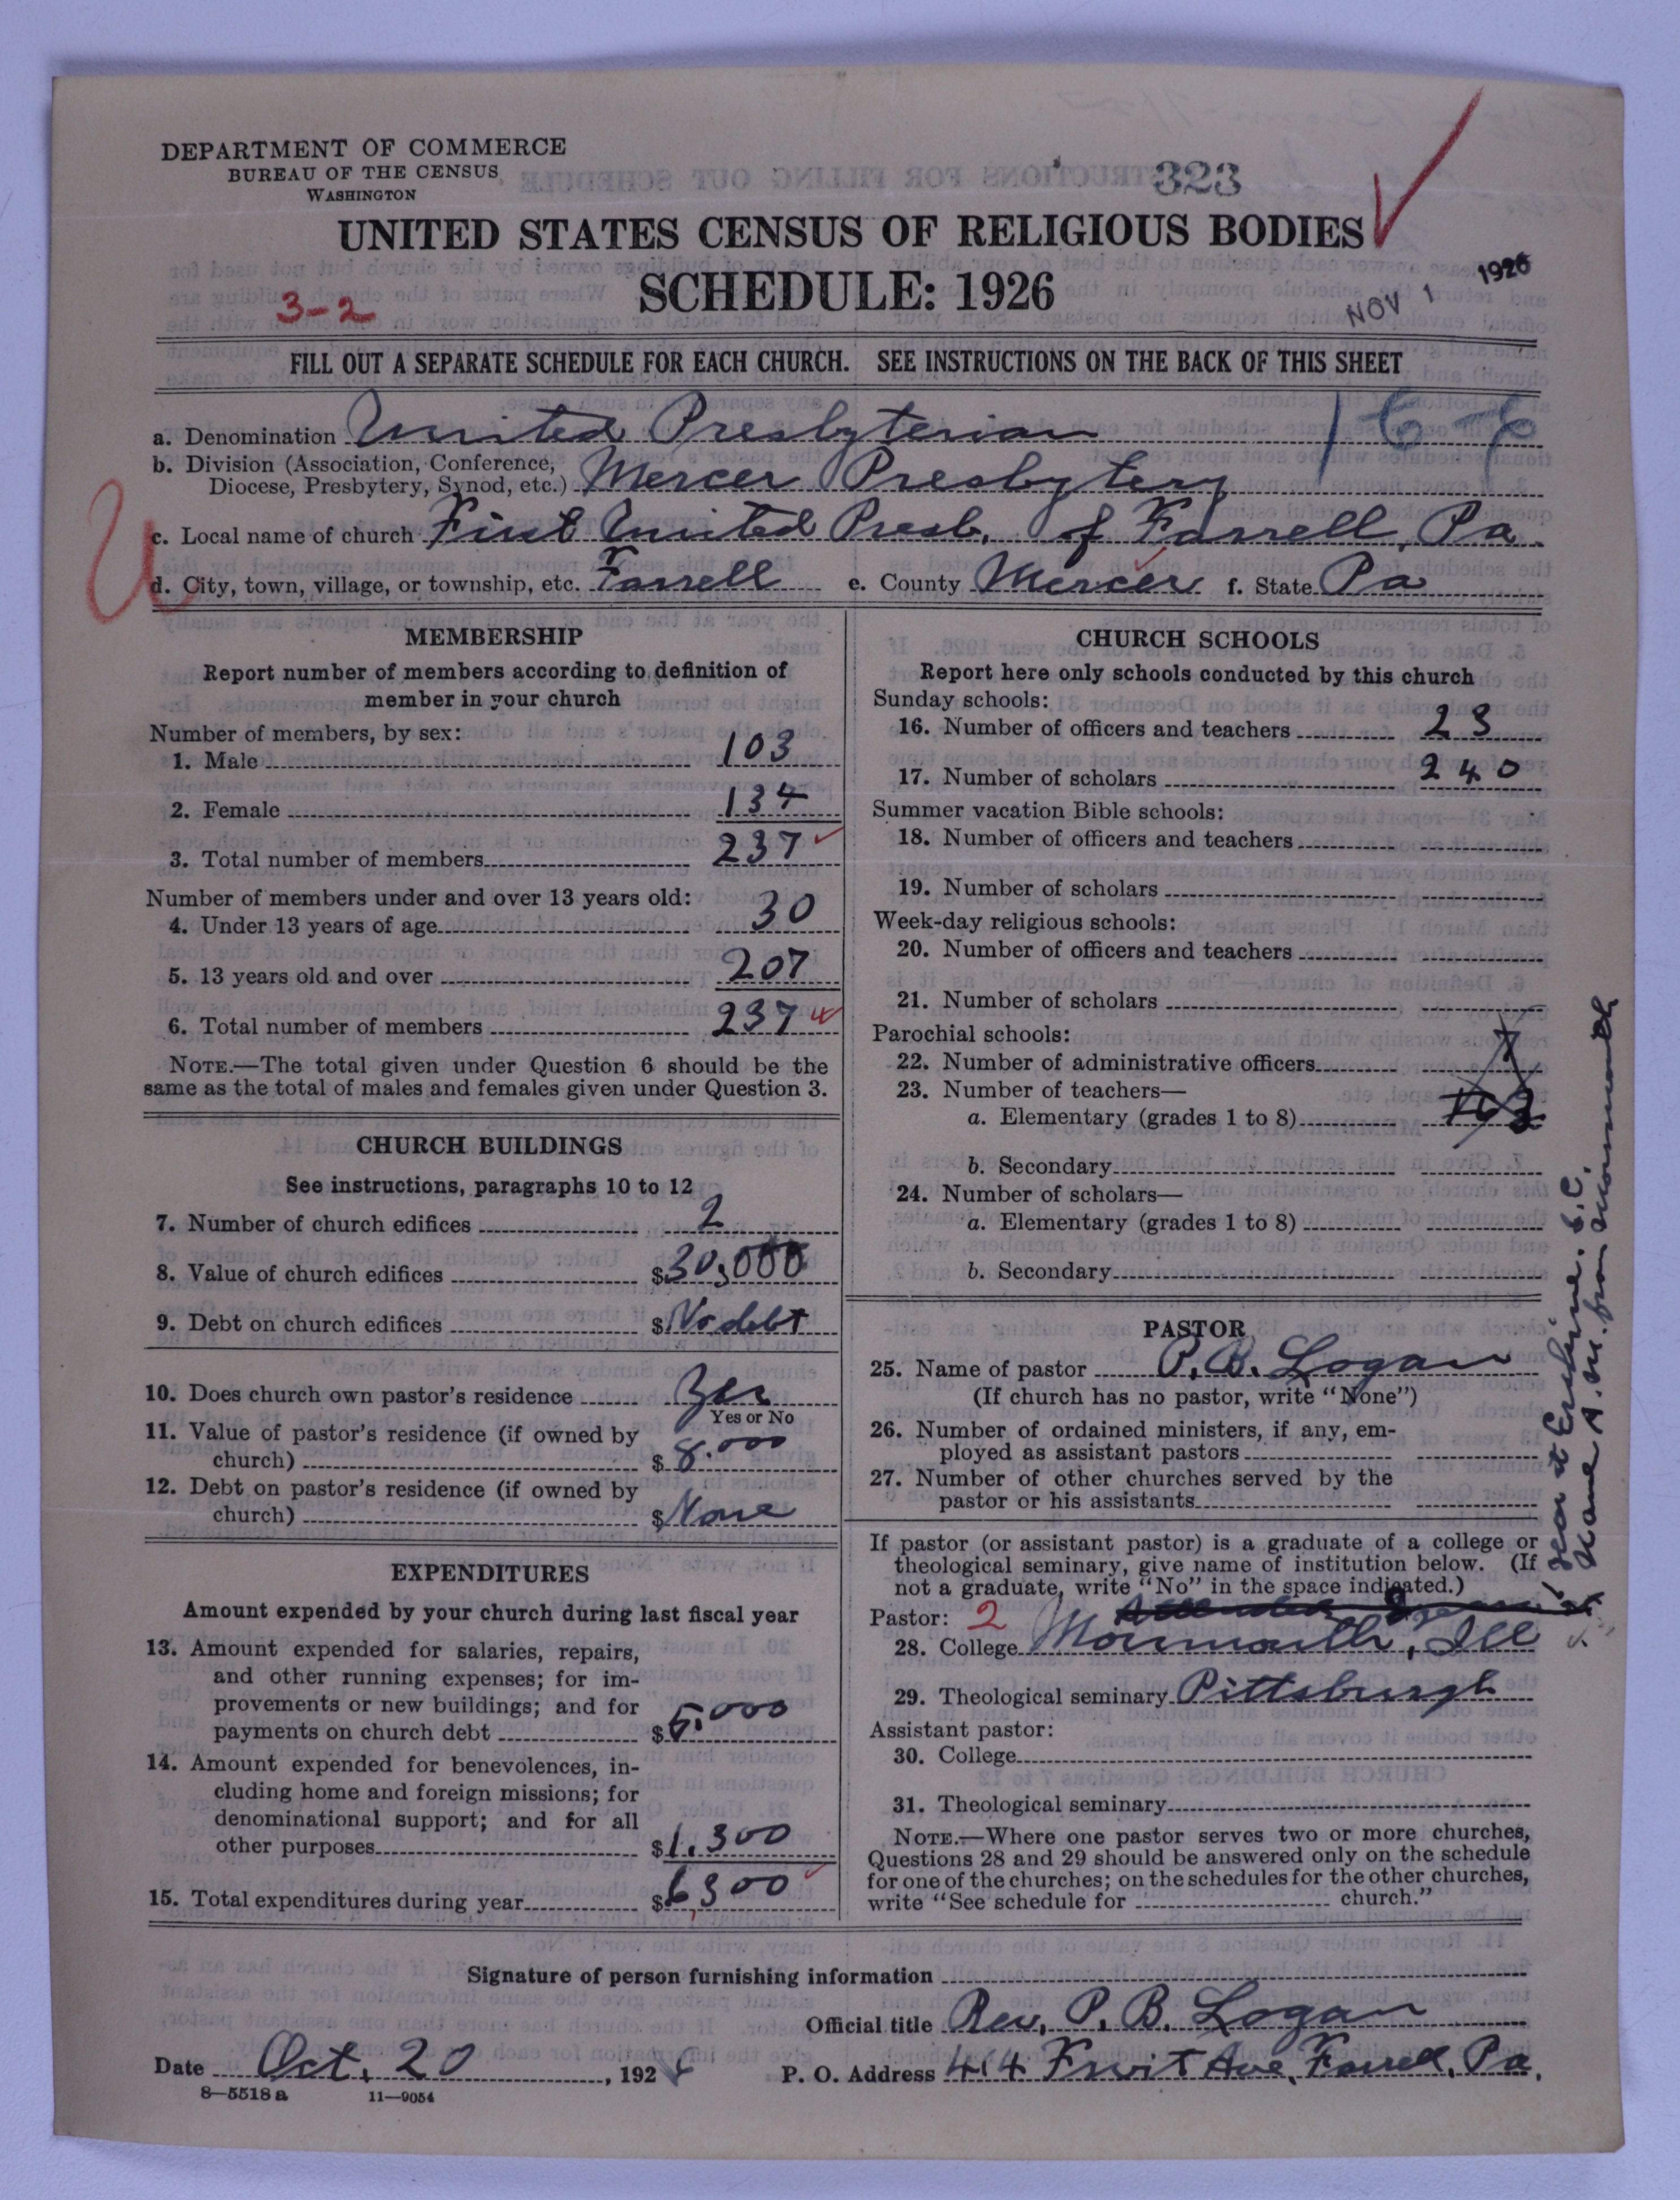 DEPARTMENT OF COMMERCE
BUREAU OF THE CENSUS
WASHINGTON
323
UNITED STATES CENSUS OF RELIGIOUS BODIES
SCHEDULE: 1926
3-2
NOV 1 1926
FILL OUT A SEPARATE SCHEDULE FOR EACH CHURCH. SEE INSTRUCTIONS ON THE BACK OF THIS SHEET
a. Denomination United Presbyterian
b. Division (Association, Conference, Diocese, Presbytery, Synod, etc.) Mercer Presbytery
c. Local name of church First United Presb. of Farrell, Pa.
d. City, town, village, or township, etc. Farrell e. County Mercer f. State Pa
MEMBERSHIP
Report number of members according to definition of
member in your church
Number of members, by sex:
1. Male 103
2. Female 134
3. Total number of members 237
Number of members under and over 13 years old:
4. Under 13 years of age 30
5. 13 years old and over 207
6. Total number of members 237
NOTE.—The total given under Question 6 should be the
same as the total of males and females given under Question 3.
CHURCH BUILDINGS
See instructions, paragraphs 10 to 12
7. Number of church edifices 2
8. Value of church edifices $30,000
9. Debt on church edifices $No debt
10. Does church own pastor's residence Yes
Yes or No
11. Value of pastor's residence (if owned by
church) $8.000
12. Debt on pastor's residence (if owned by
church) $None
EXPENDITURES
Amount expended by your church during last fiscal year
13. Amount expended for salaries, repairs,
and other running expenses; for im-
provements or new buildings; and for
payments on church debt $5.000
14. Amount expended for benevolences, in-
cluding home and foreign missions; for
denominational support; and for all
other purposes $1.300
15. Total expenditures during year $6,300
CHURCH SCHOOLS
Report here only schools conducted by this church
Sunday schools:
16. Number of officers and teachers 23
17. Number of scholars 240
Summer vacation Bible schools:
18. Number of officers and teachers
19. Number of scholars
Week-day religious schools:
20. Number of officers and teachers
21. Number of scholars
Parochial schools:
22. Number of administrative officers
23. Number of teachers—
a. Elementary (grades 1 to 8)
b. Secondary
24. Number of scholars—
a. Elementary (grades 1 to 8)
b. Secondary
PASTOR
25. Name of pastor P. B. Logan
(If church has no pastor, write "None")
26. Number of ordained ministers, if any, em-
ployed as assistant pastors
27. Number of other churches served by the
pastor or his assistants
If pastor (or assistant pastor) is a graduate of a college or
theological seminary, give name of institution below. (If
not a graduate, write "No" in the space indicated.)
Pastor: 2
28. College Monmouth, Ill
29. Theological seminary Pittsburgh
Assistant pastor:
30. College
31. Theological seminary
NOTE.—Where one pastor serves two or more churches,
Questions 28 and 29 should be answered only on the schedule
for one of the churches; on the schedules for the other churches,
write "See schedule for church."
year at Erskine. S.C.
Have A.M. from Monmouth
Signature of person furnishing information
Official title Rev. P. B. Logan
Date Oct. 20, 1926 P. O. Address 414 Fruit Ave, Farrell, Pa.
8—5518 a 11—9054